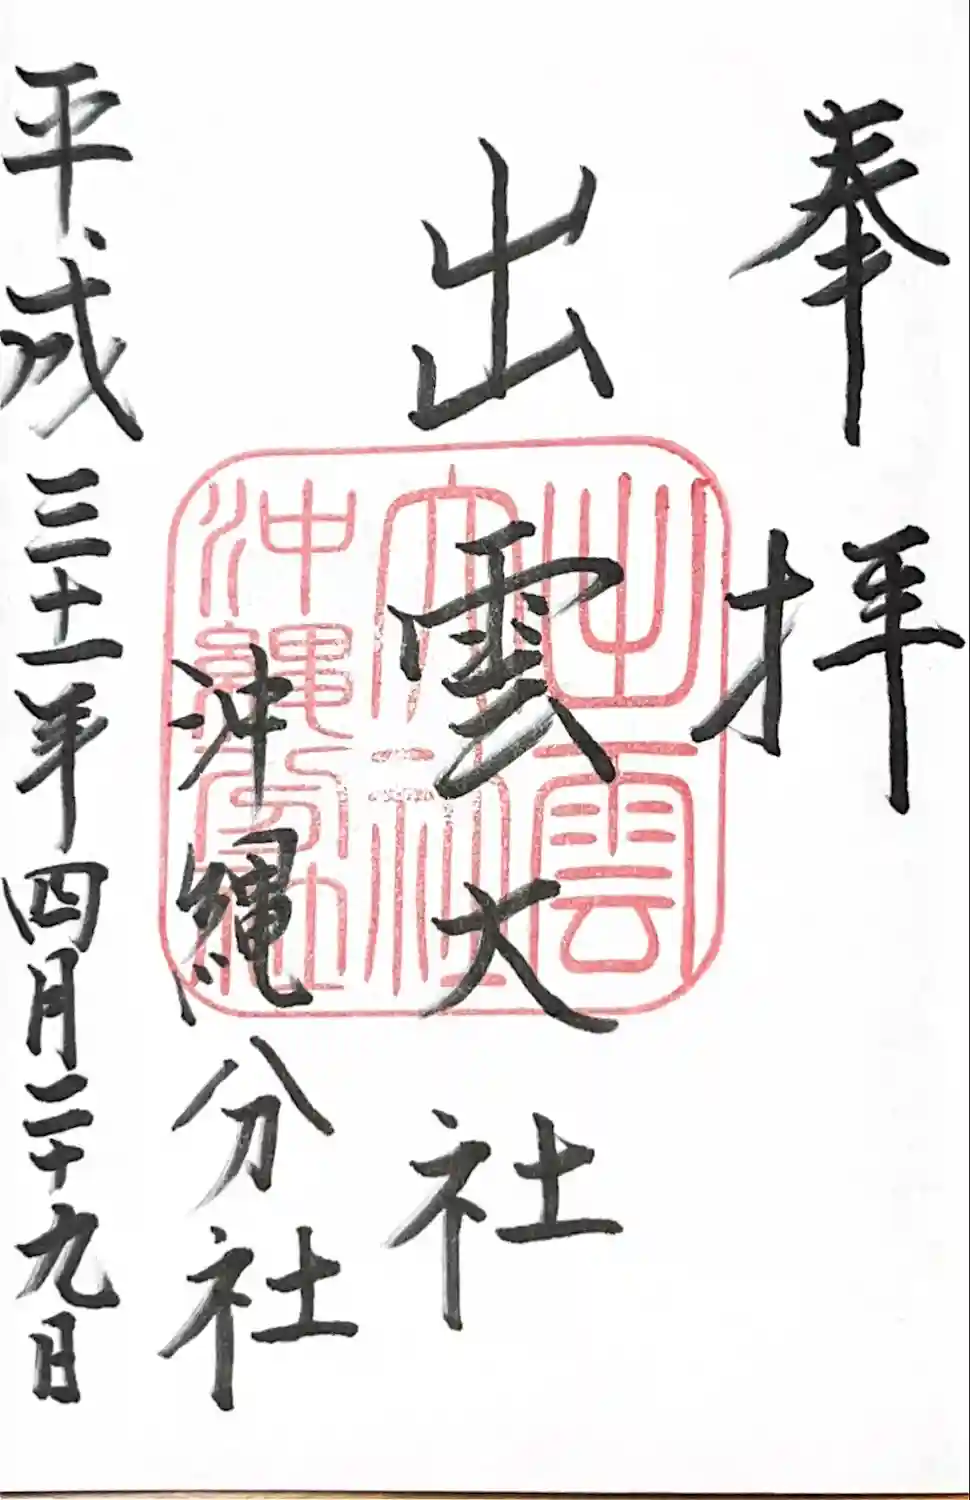 奉拝
出雲大社
沖縄分社
平成三十一年四月二十九日
出雲
大社
沖縄分社